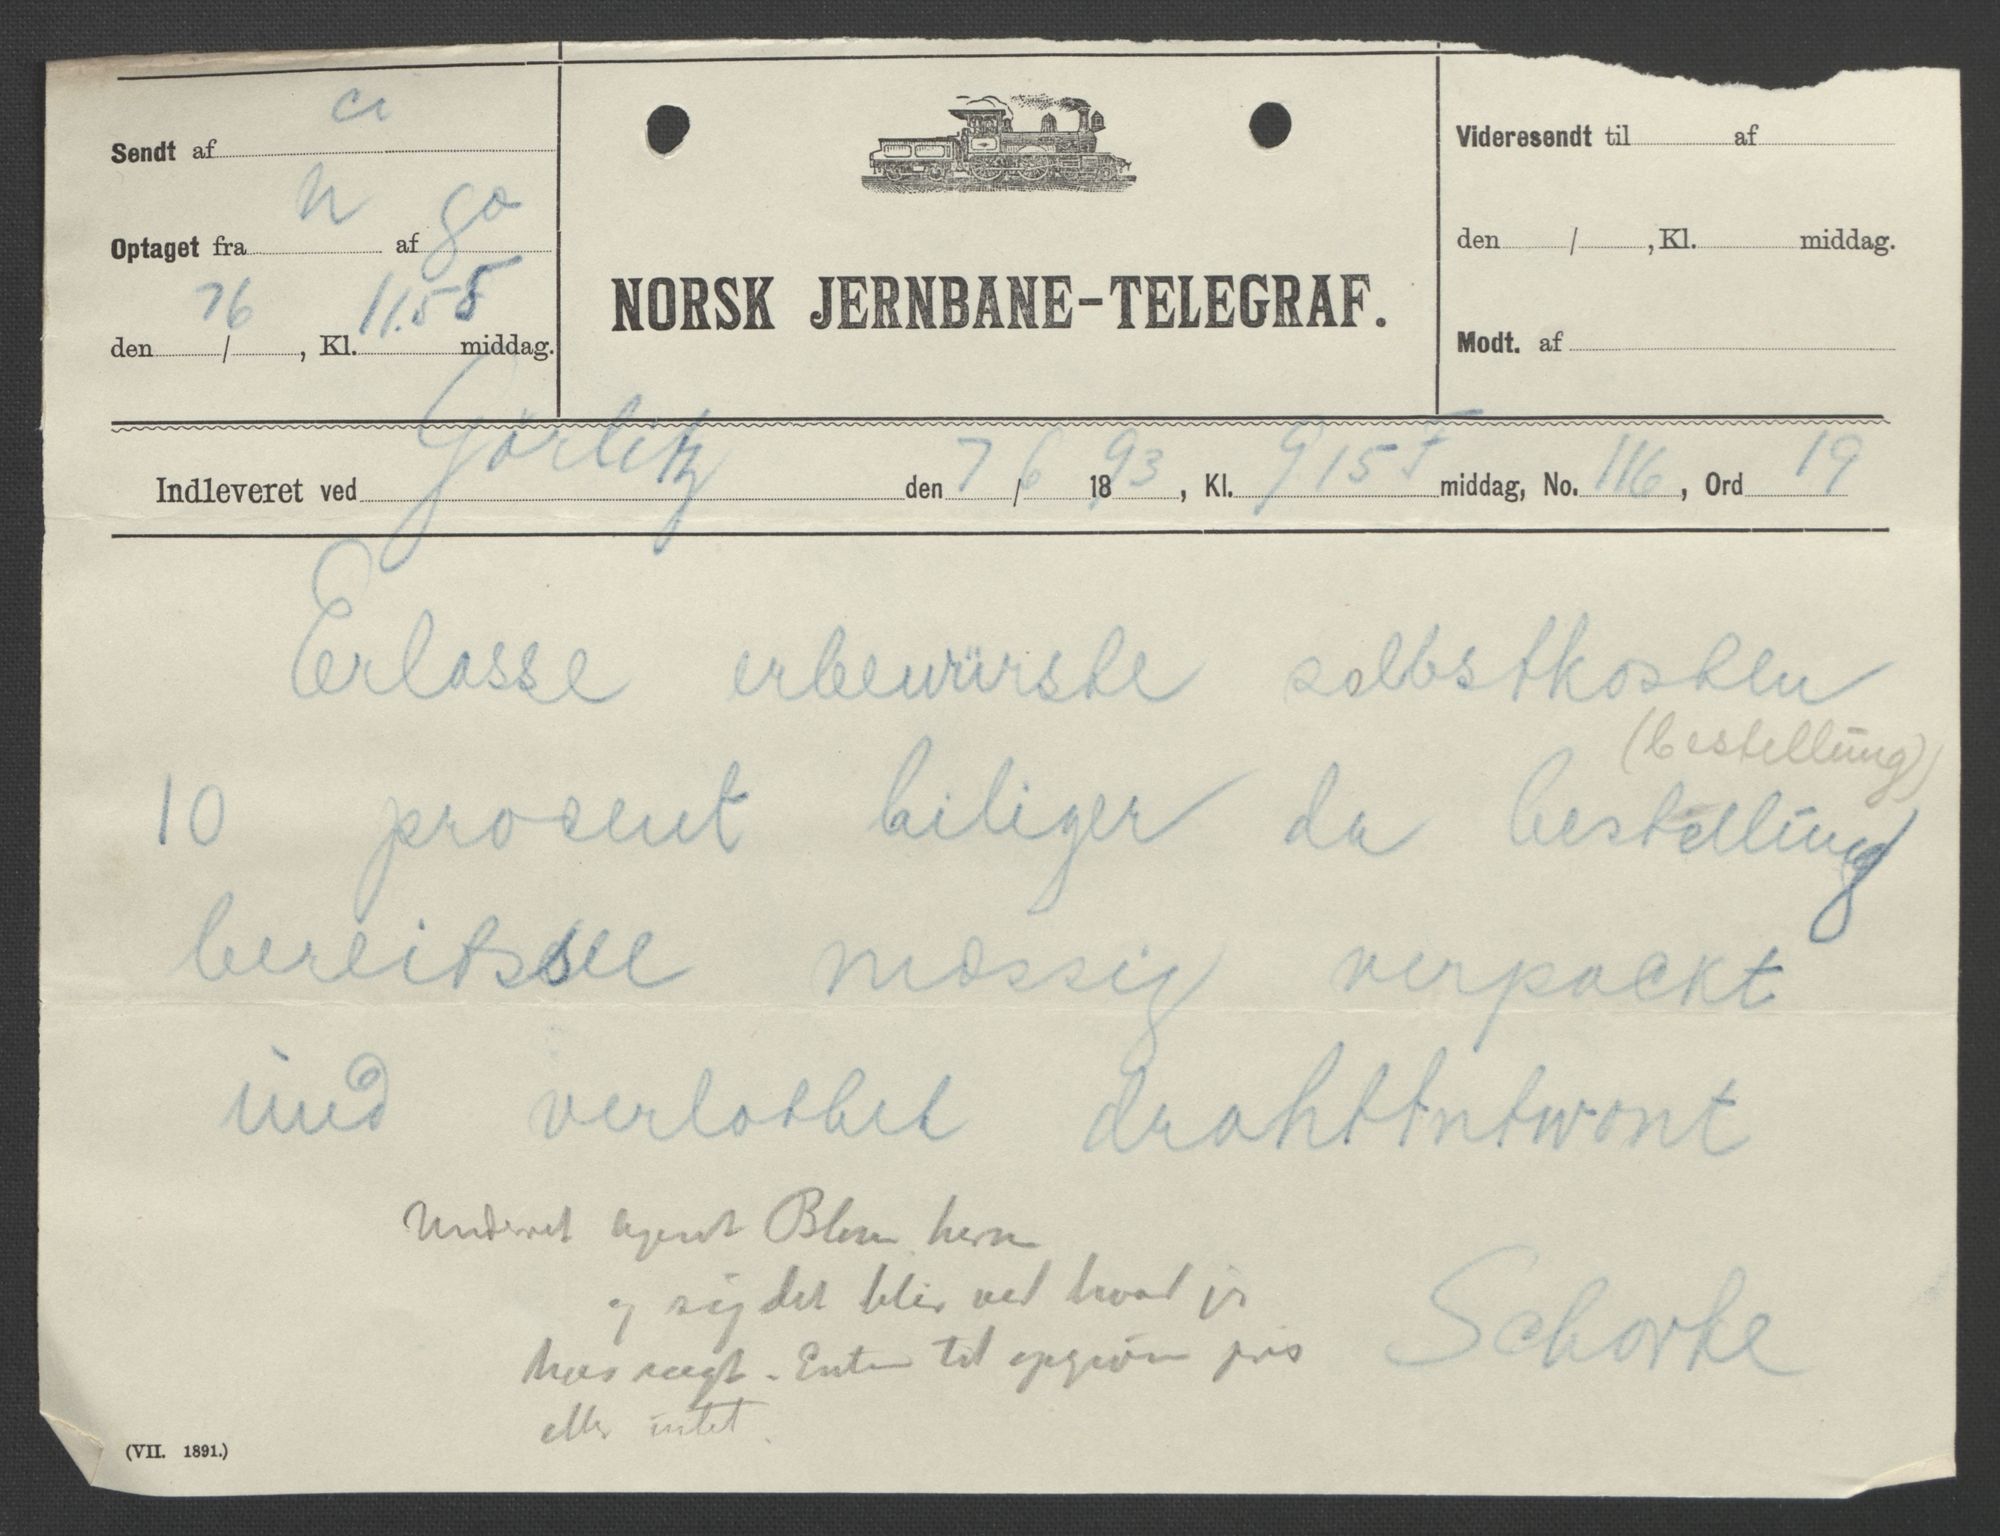 Sendt af ci
Optaget fra n af go
den 7/6, Kl. 11.55 middag.
NORSK JERNBANE-TELEGRAF.
Videresendt til af
den / , Kl. middag.
Modt. af
Indleveret ved Görlitz den 7/6 1893, Kl. 9 15 F middag, No. 116, Ord 19
Erlasse erbewürste selbstkosten
(bestellung)
10 prosent biliger da bestellung
bereitssee mæssig verpackt
und verlothet drahttntwont
Underret agent Blom herom
og sig det blir ved hvad jeg
har sagt. Enten til opgiven pris
eller intet.
Schorke
(VII. 1891.)